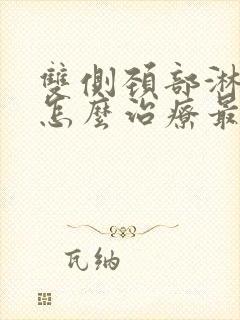 雙側頚部淋
怎麼治療最
瓦納